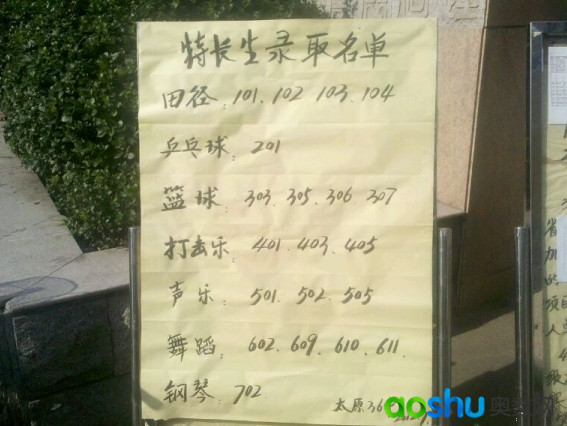 特长生录取名单
田径：101、102 103、104
乒乓球：201
篮球：303、305、306、307
打击乐：401、403、405
声乐：501、502、505
舞蹈：602、609、610、611、
钢琴、702
太原36
aoshu奥数
省
加
的
项
人